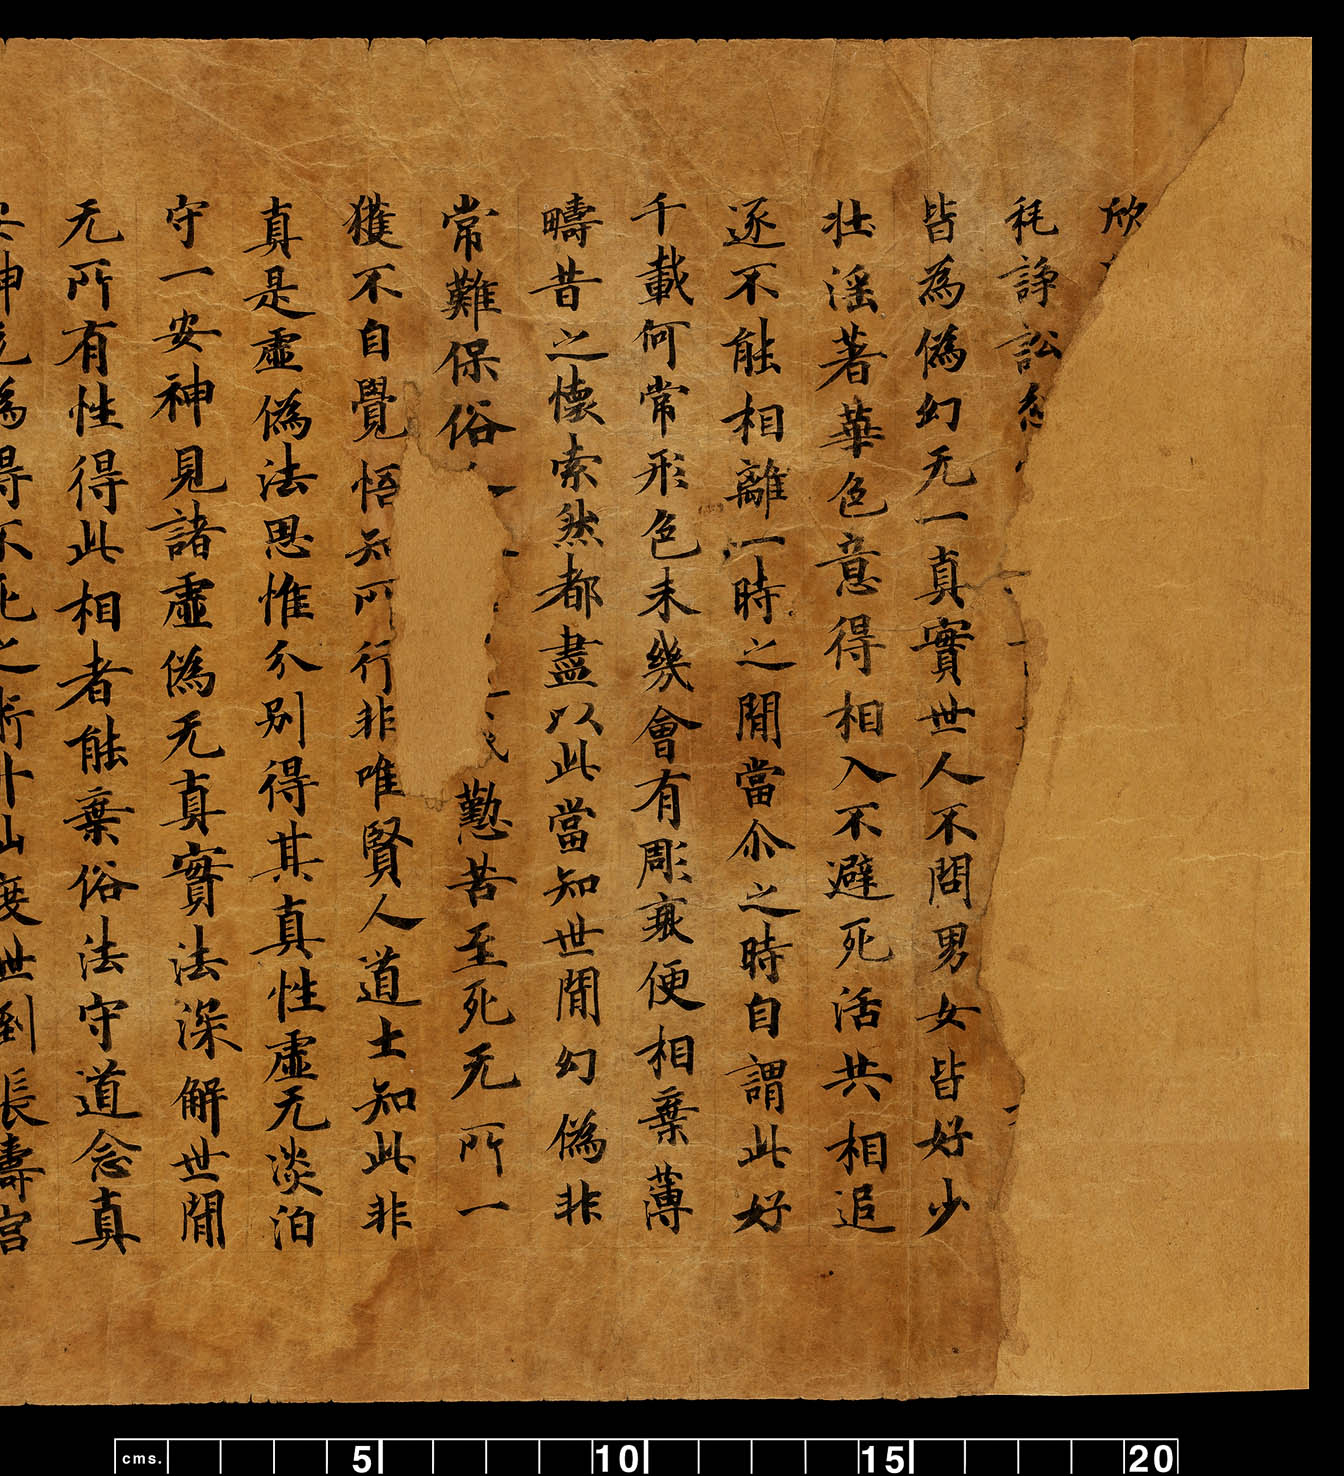 欣
秏諍訟
皆為偽幻无一真實世人不問男女皆好少
壮淫著華色意得相入不避死活共相追
逐不能相離一時之間當尒之時自謂此好
千載何常形色未幾會有彫衰便相棄薄
疇昔之懷索然都盡以此當知世間幻偽非
常難保俗勤苦至死无所一
獲不自覺悟知所行非唯賢人道士知此非
真是虛偽法思惟分別得其真性虛无淡泊
守一安神見諸虛偽无真實法深解世間
无所有性得此相者能棄俗法守道念真
安神无為得不死之術升山度世到長壽宮